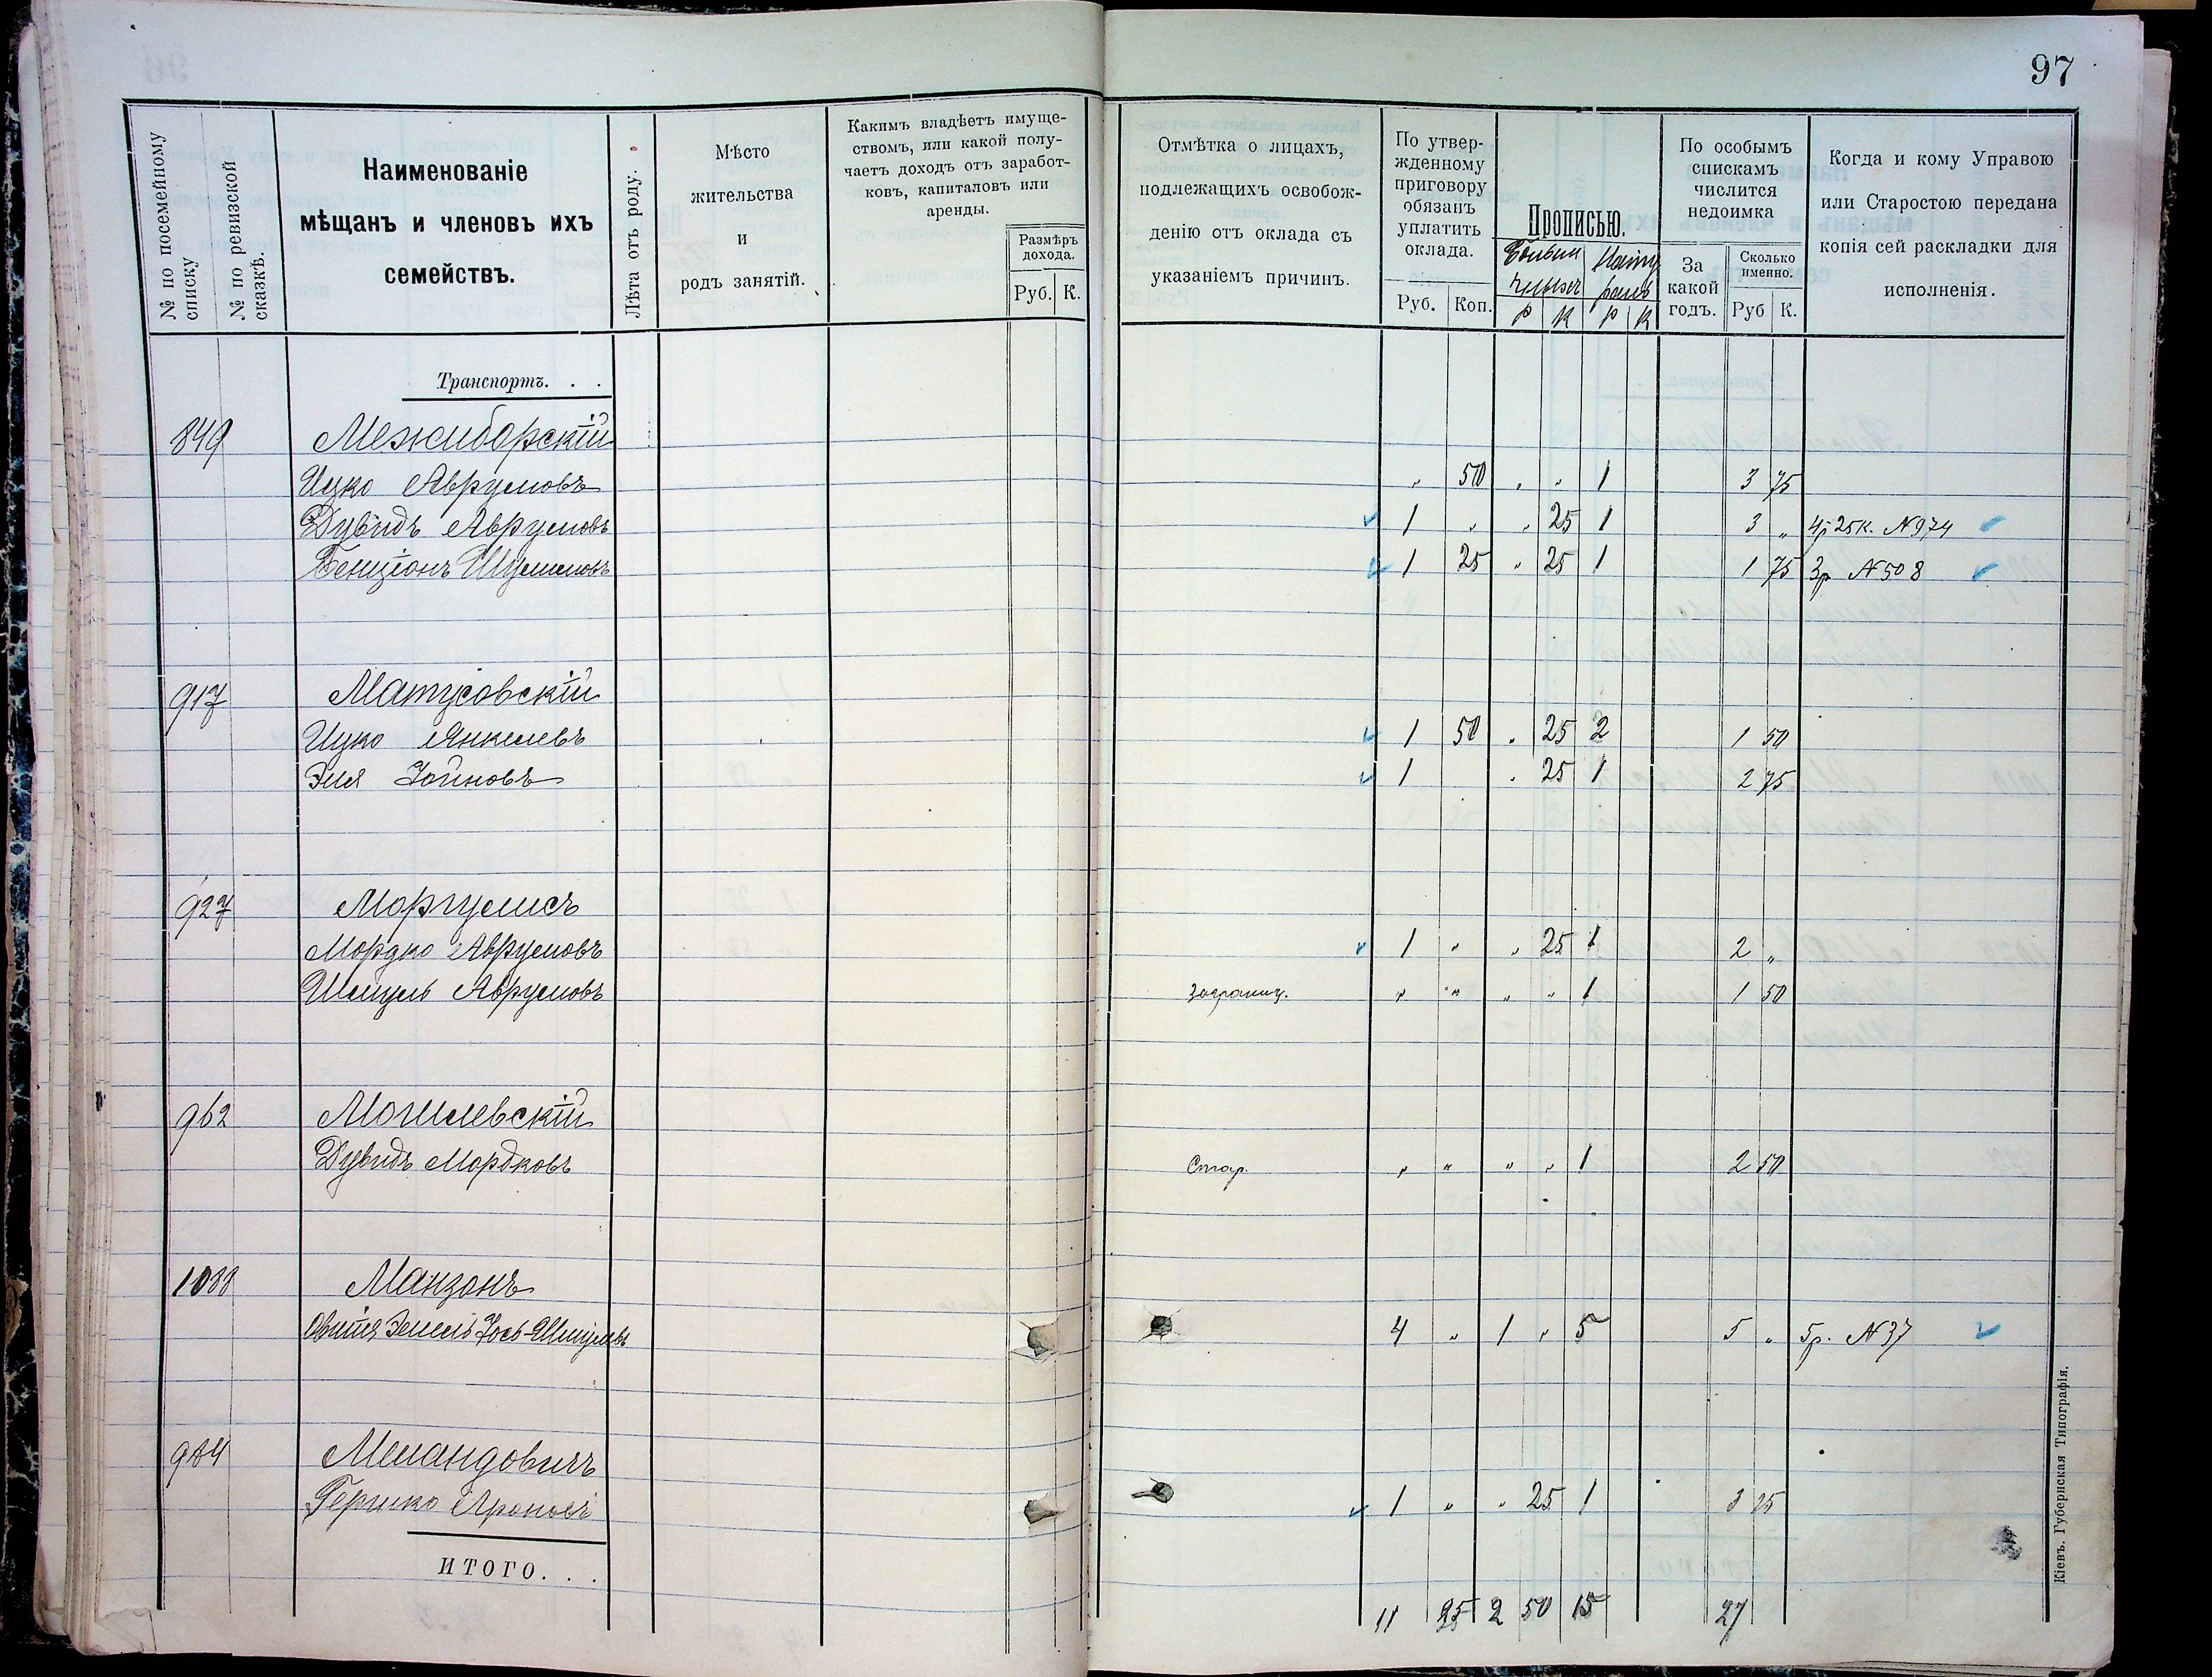 97
№ по посемейному списку
№ по ревизской сказкѣ.
Наименованіе
мѣщанъ и членовъ ихъ
семействъ.
Лѣта отъ роду.
Мѣсто
жительства
и
родъ занятій.
Какимъ владѣетъ имуще-
ствомъ, или какой полу-
чаетъ доходъ отъ заработ-
ковъ, капиталовъ или
аренды.
Размѣръ
дохода.
Руб. К.
Отмѣтка о лицахъ,
подлежащихъ освобож-
денію отъ оклада съ
указаніемъ причинъ.
По утвер-
жденному
приговору
обязанъ
уплатить
оклада.
Руб. Коп.
Прописью.
Р К Р К
По особымъ
спискамъ
числится
недоимка
За
какой
годъ.
Сколько
именно.
Руб К.
Когда и кому Управою
или Старостою передана
копія сей раскладки для
исполненія.
Транспортъ. . .
849 Межиборскій
Ицко Аврумовъ „ 50 „ „ 1 3 75
Дувидъ Аврумовъ 1 „ „ 25 1 3 „ 4р 25к. N 974
Бенціонъ 1 25 „ 25 1 1 75 3р N 508
917 Матусовскій
Ицко Янкелевъ 1 50 „ 25 2 1 50
Эля Іойновъ 1 „ 25 1 2 75
927 Моргулисъ
Мордко Аврумовъ 1 „ „ 25 1 2 „
Шмуль Аврумовъ Заграниц. „ „ „ „ 1 1 50
962 Могилевскій
Дувидъ Мордковъ Стар. „ „ „ „ 1 2 50
1088 Манзонъ
Зелель Іось-Шмулевъ 4 „ 1 „ 5 5 „ 5р. N 37
984 Меландовичъ
Гершко Ароновъ 1 „ „ 25 1 3 25
ИТОГО. . .
11 25 2 50 15 27
Кіевъ. Губернская Типографія.